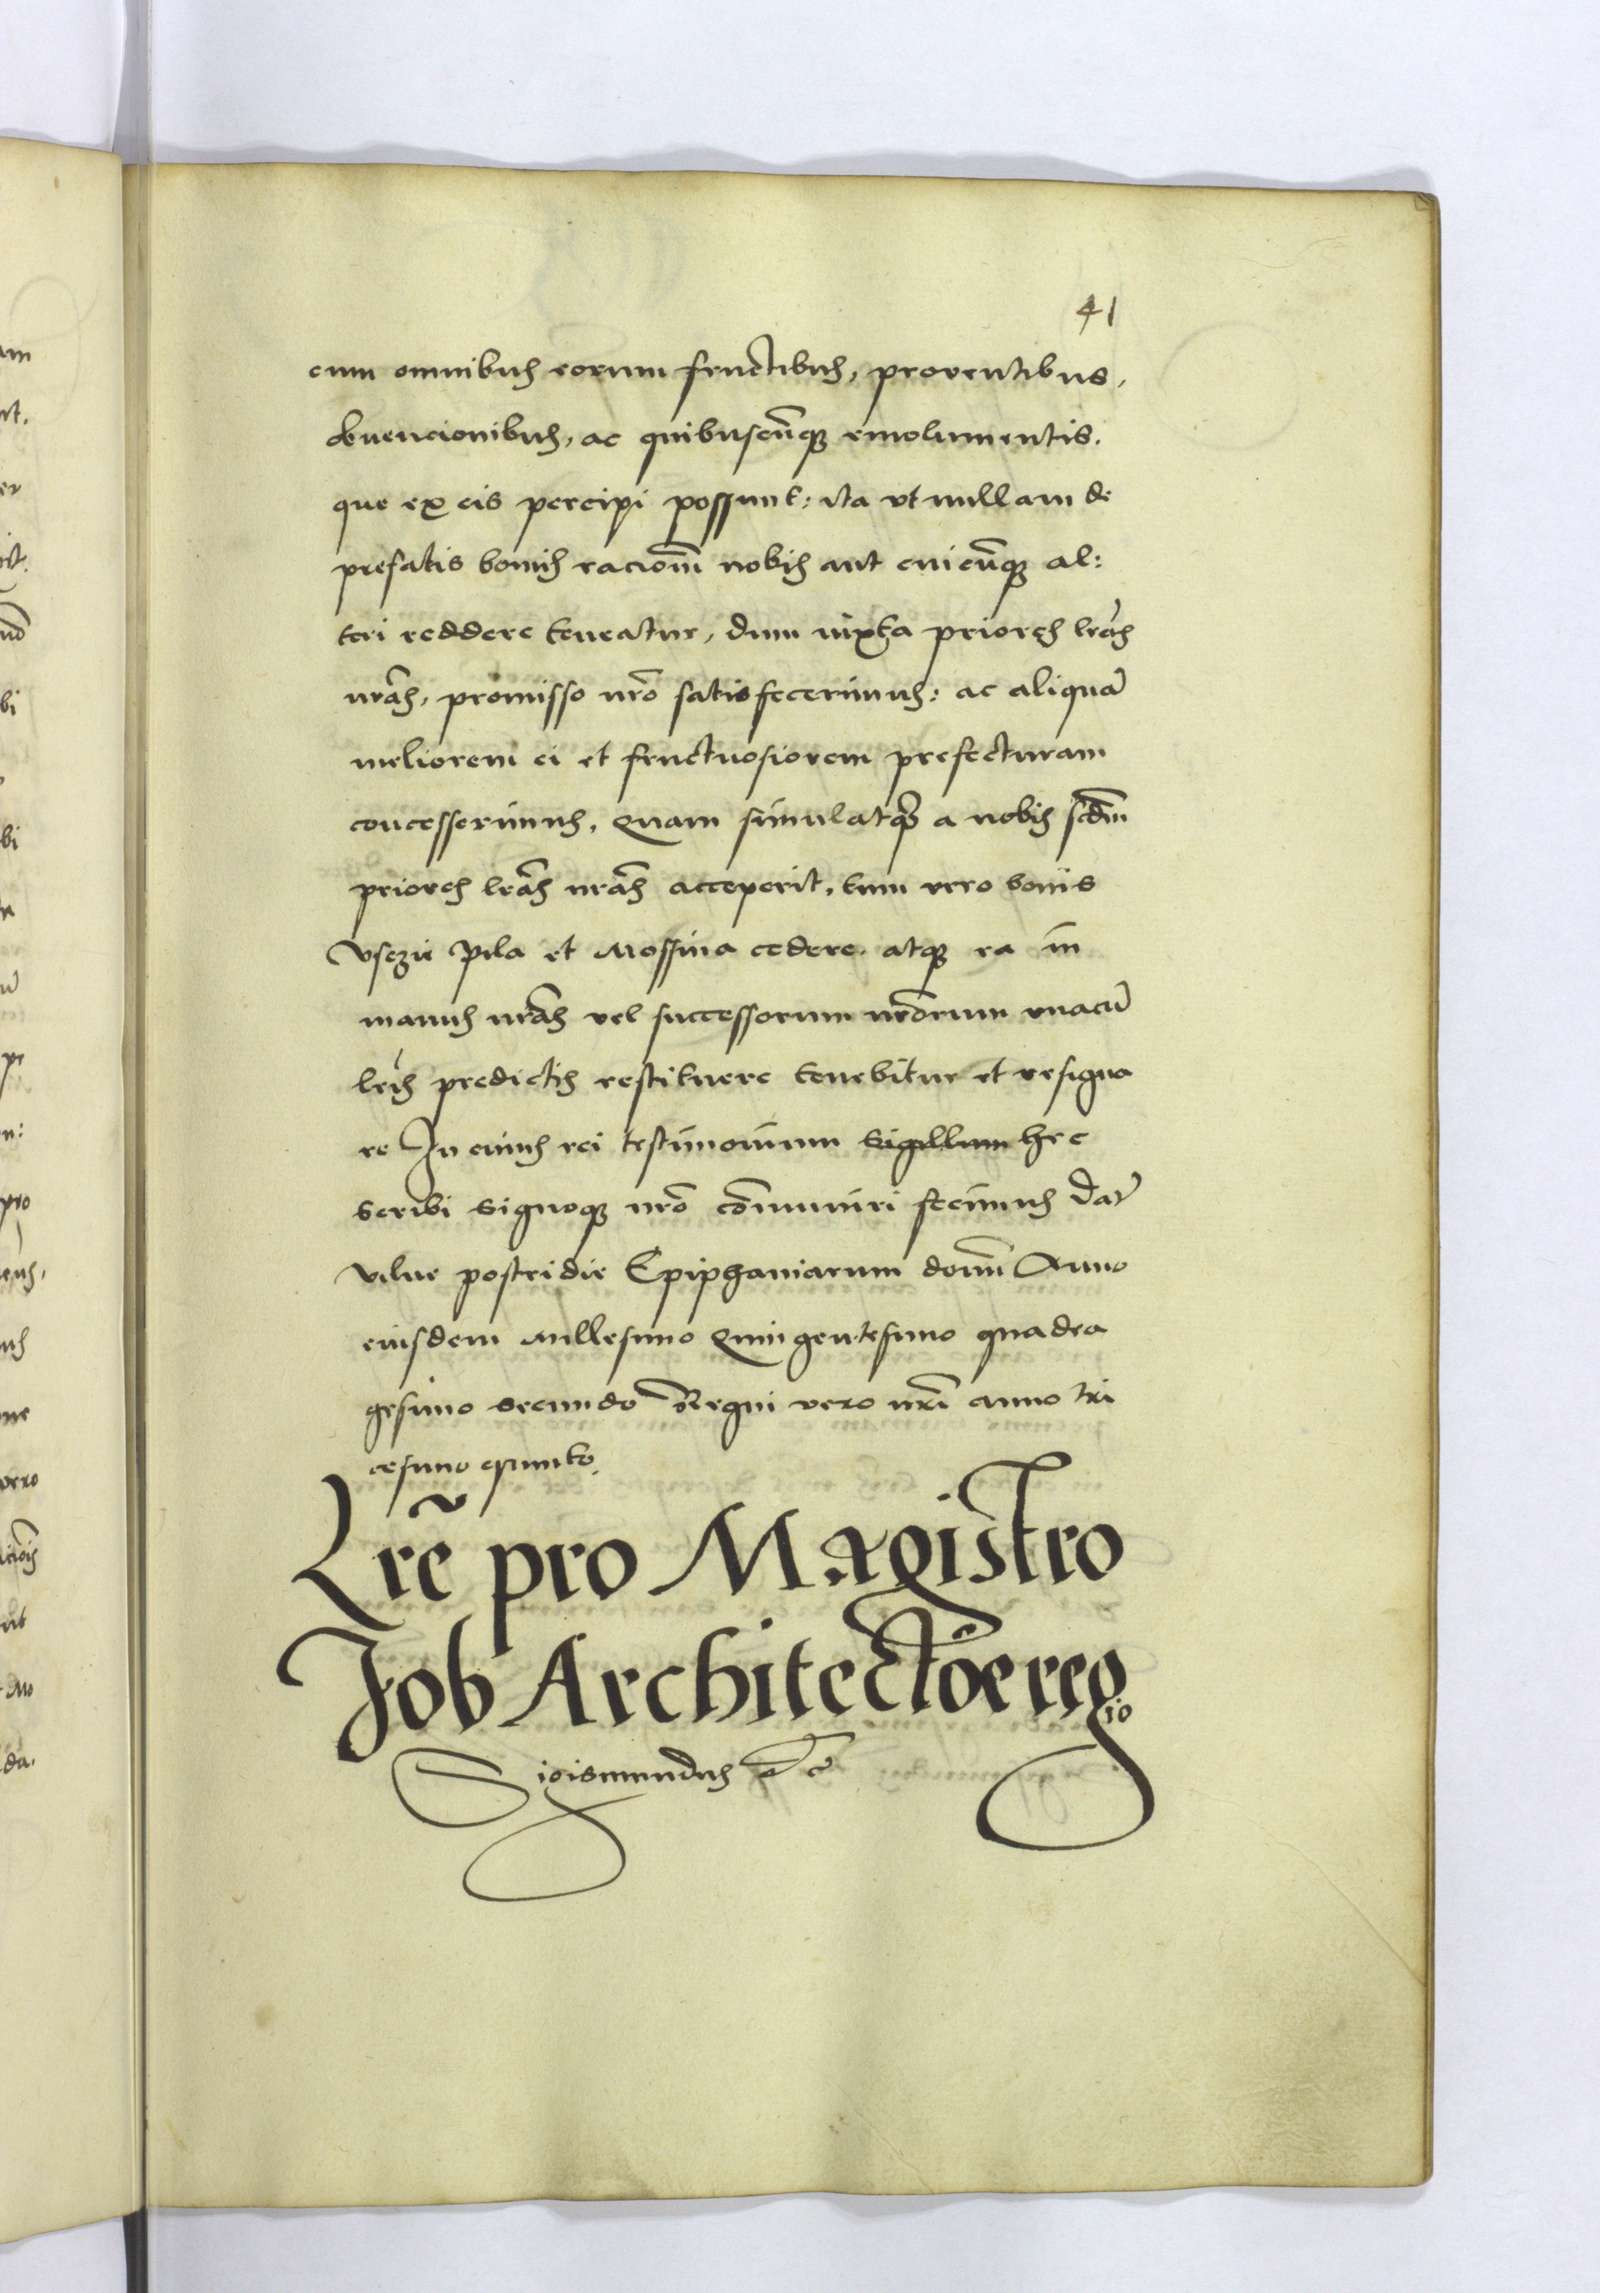 41
cum omnibus eorum fructibus, proventibus,
obvencionibus, ac quibuscūq; emolumentis.
que ex eis percipi possunt: ita ut nullam de
prefatis bonis racionē nobis aut cuicūq; al:
teri reddere teneatur, dum iuxta priores lrās
nrās, promisso nrō satisfecerimus: ac aliquā
meliorem ei et fructuosiorem prefecturam
concesserimus. Quam simulatq; a nobis scdm
priores lrās nrās acceperit, tum vero bonis
Usczie Pila et Mossina cedere. atq; ea in
manus nrās vel successorum nrōrum unacū
lris predictis restituere tenebitur et resigna
re In cuius rei testimonium sigillum hec
scribi signoq; nrō cōmuniri fecimus Dat
Vilne postridie Epiphaniarum domi Anno
eiusdem Millesimo Quingentesimo quadra
gesimo secundo Regni vero nri anno tri
cesimo quinto
Lrē pro Magistro
Job Architectore reg
io
Sigismundus etc
am
nt.
er
bi
bi
pro
vero
Mo
da.